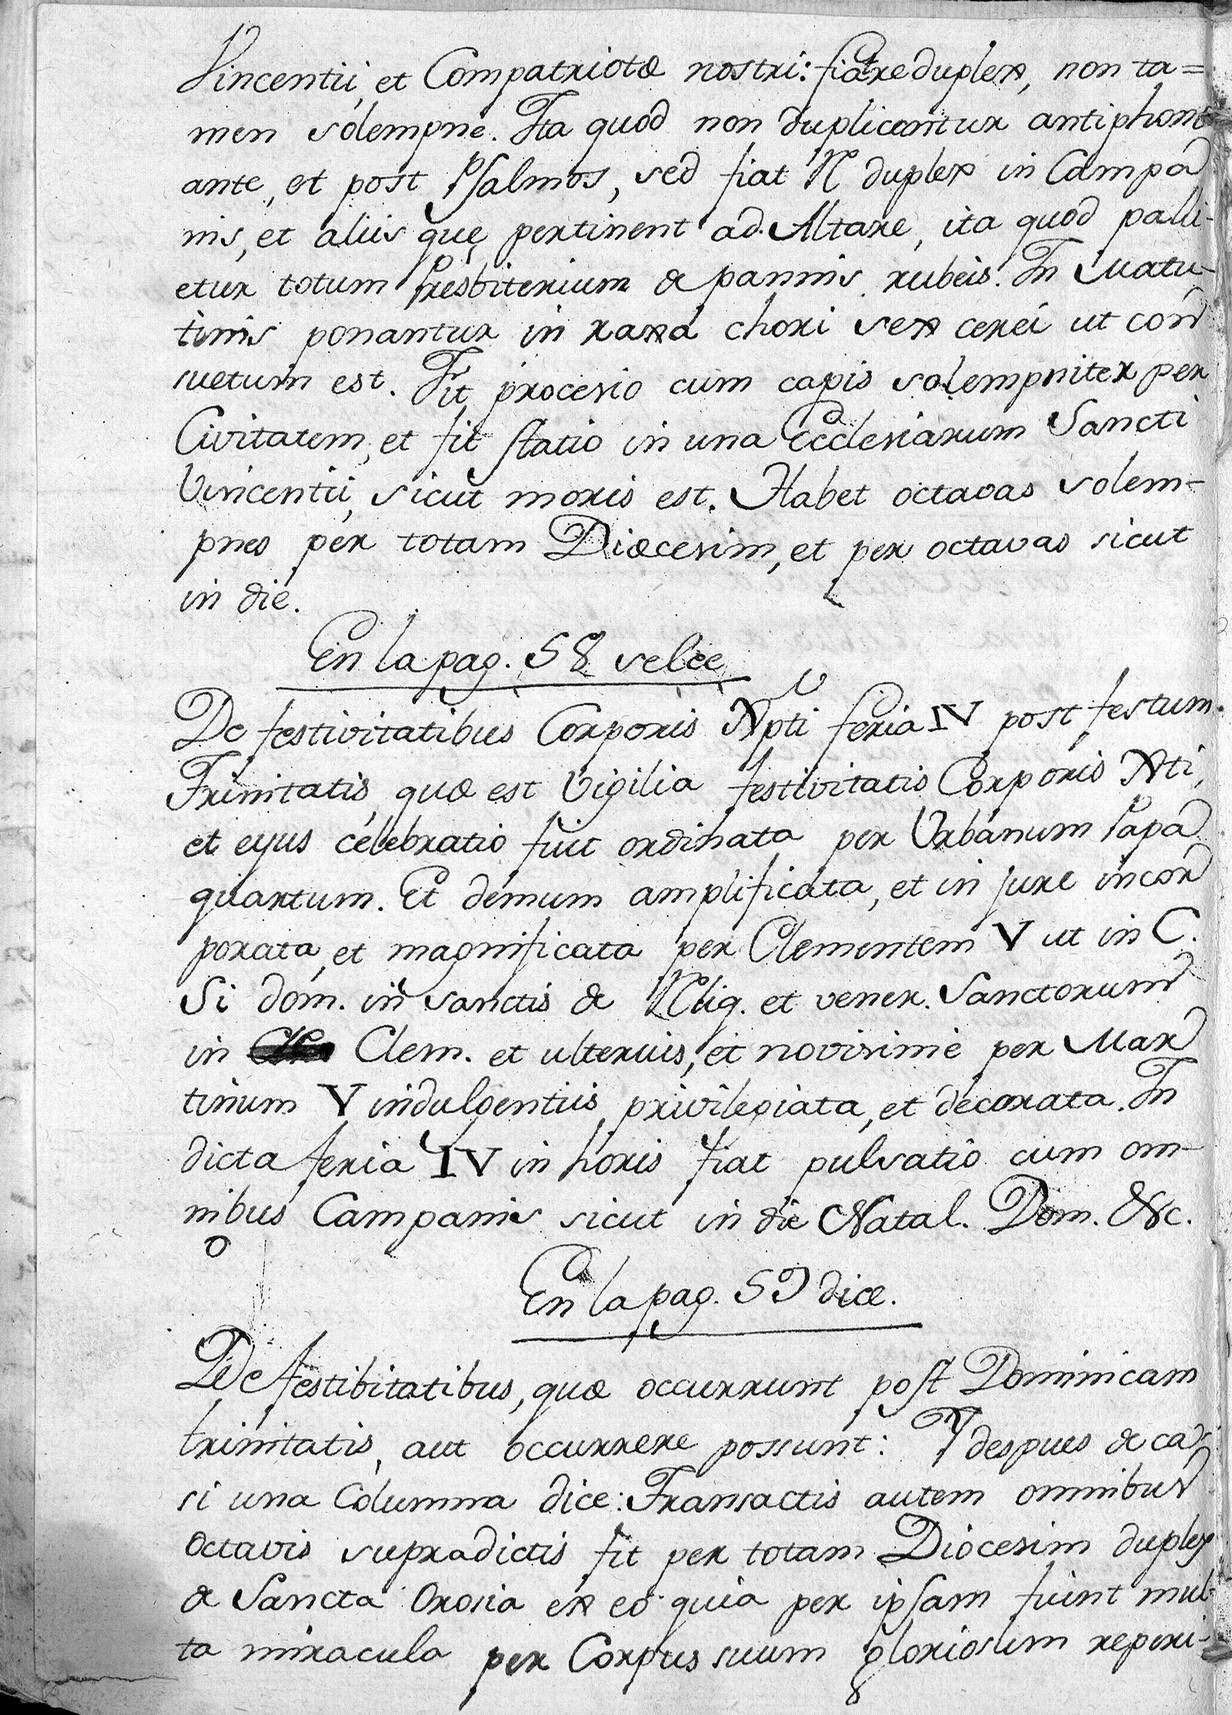 Vincentii, et Compatriotæ nostri: fiat re duplex, non ta=
men solempne. Ita quod non duplicentur antiphone
ante, et post Psalmos, sed fiat R duplex in Campa
nis, et aliis quę pertinent ad Altare, ita quod pali-
etur totum Presbiterium de pannis rubeis. In Matu-
tinis ponantur in raxa chori sex cerei ut con
suetum est. Fit procesio cum capis solempniter per
Civitatem, et fit statio in una Ecclesiarum Sancti
Vincentii, sicut moris est. Habet octavas solem-
pnes per totam Diœcesim, et per octavas sicut
in die.
En la pag. 58 se lee
De festivitatibus Corporis Xpti feria IV post festum
Trinitatis, quæ est Vigilia festivitatis Corporis Xti,
et ejus celebratio fuit ordinata per Urbanum Papa
quartum. Et demum amplificata, et in jure incor
porata, et magnificata per Clementem V ut in C.
Si dom. in sanctis de Reliq. et vener. Sanctorum
in Clem. et ulterius, et novisime per Mar
tinum V indulgentiis, privilegiata, et decorata. In
dicta feria IV in horis fiat pulsatio cum om-
nibus Campanis sicut in die Natal. Dom. &c.
En la pag. 59 dice.
De festibitatibus, quæ occurrunt post Dominicam
trinitatis, aut occurrere possunt: Y despues de ca-
si una Columna dice: Transactis autem omnibus
octavis supradictis fit per totam Diocesim duplex
de Sancta Orosia ex eo quia per ipsam fiunt mul-
ta miracula per Corpus suum gloriosum reperi-